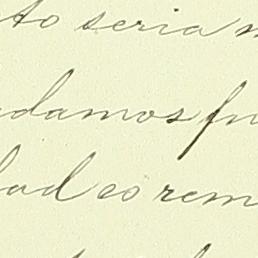 to seria
damos
dad es rem